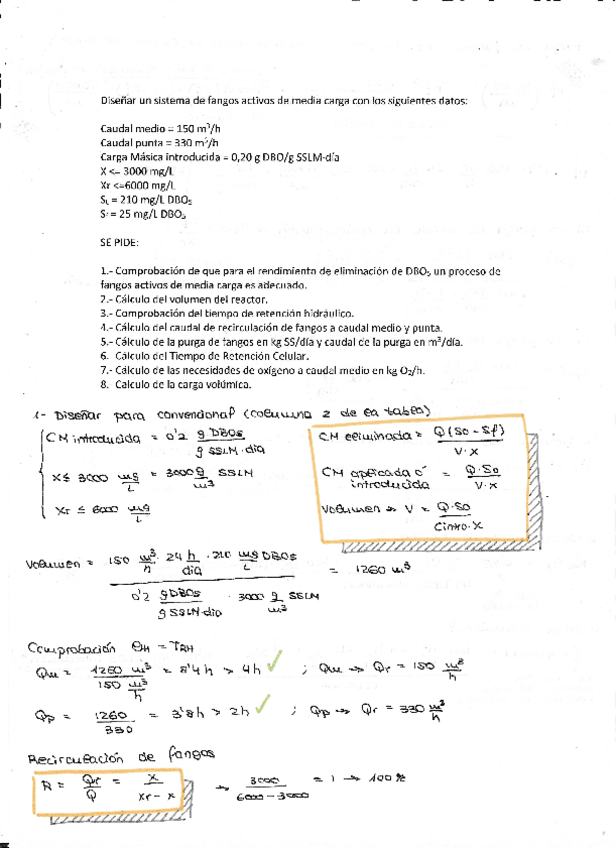 Diseñar un sistema de fangos activos de media carga con los siguientes datos:
Caudal medio = 150 m³/h
Caudal punta = 330 m³/h
Carga Másica introducida = 0,20 g DBO/g SSLM-día
X <= 3000 mg/L
Xr <=6000 mg/L
S₀ = 210 mg/L DBO₅
Sf = 25 mg/L DBO₅
SE PIDE:
1.- Comprobación de que para el rendimiento de eliminación de DBO₅ un proceso de
fangos activos de media carga es adecuado.
2.- Cálculo del volumen del reactor.
3.- Comprobación del tiempo de retención hidráulico.
4.- Cálculo del caudal de recirculación de fangos a caudal medio y punta.
5.- Cálculo de la purga de fangos en kg SS/día y caudal de la purga en m³/día.
6. Cálculo del Tiempo de Retención Celular.
7.- Cálculo de las necesidades de oxígeno a caudal medio en kg O₂/h.
8. Calculo de la carga volúmica.
1- Diseñar para convencional (columna 2 de la tabla)
CM introducida = 0'2 g DBO5 / g SSLM·dia
X ≤ 3000 mg/L = 3000 g/m³ SSLM
Xr ≤ 6000 mg/L
CM eliminada = Q(So - Sf) / V·X
CM aplicada ó introducida = Q·So / V·X
Volumen → V = Q·So / Cintro·X
Volumen = 150 m³/h · 24 h/dia · 210 mg DBO5/L / 0'2 g DBO5/g SSLM·dia · 3000 g SSLM/m³ = 1260 m³
Comprobación ΘH = TRH
Qm = 1260 m³ / 150 m³/h = 8'4h > 4h ✓ ; Qm → Qr = 150 m³/h
Qp = 1260 / 330 = 3'8h > 2h ✓ ; Qp → Qr = 330 m³/h
Recirculación de fangos
R = Qr/Q = X / Xr - X → 3000 / 6000 - 3000 = 1 → 100%